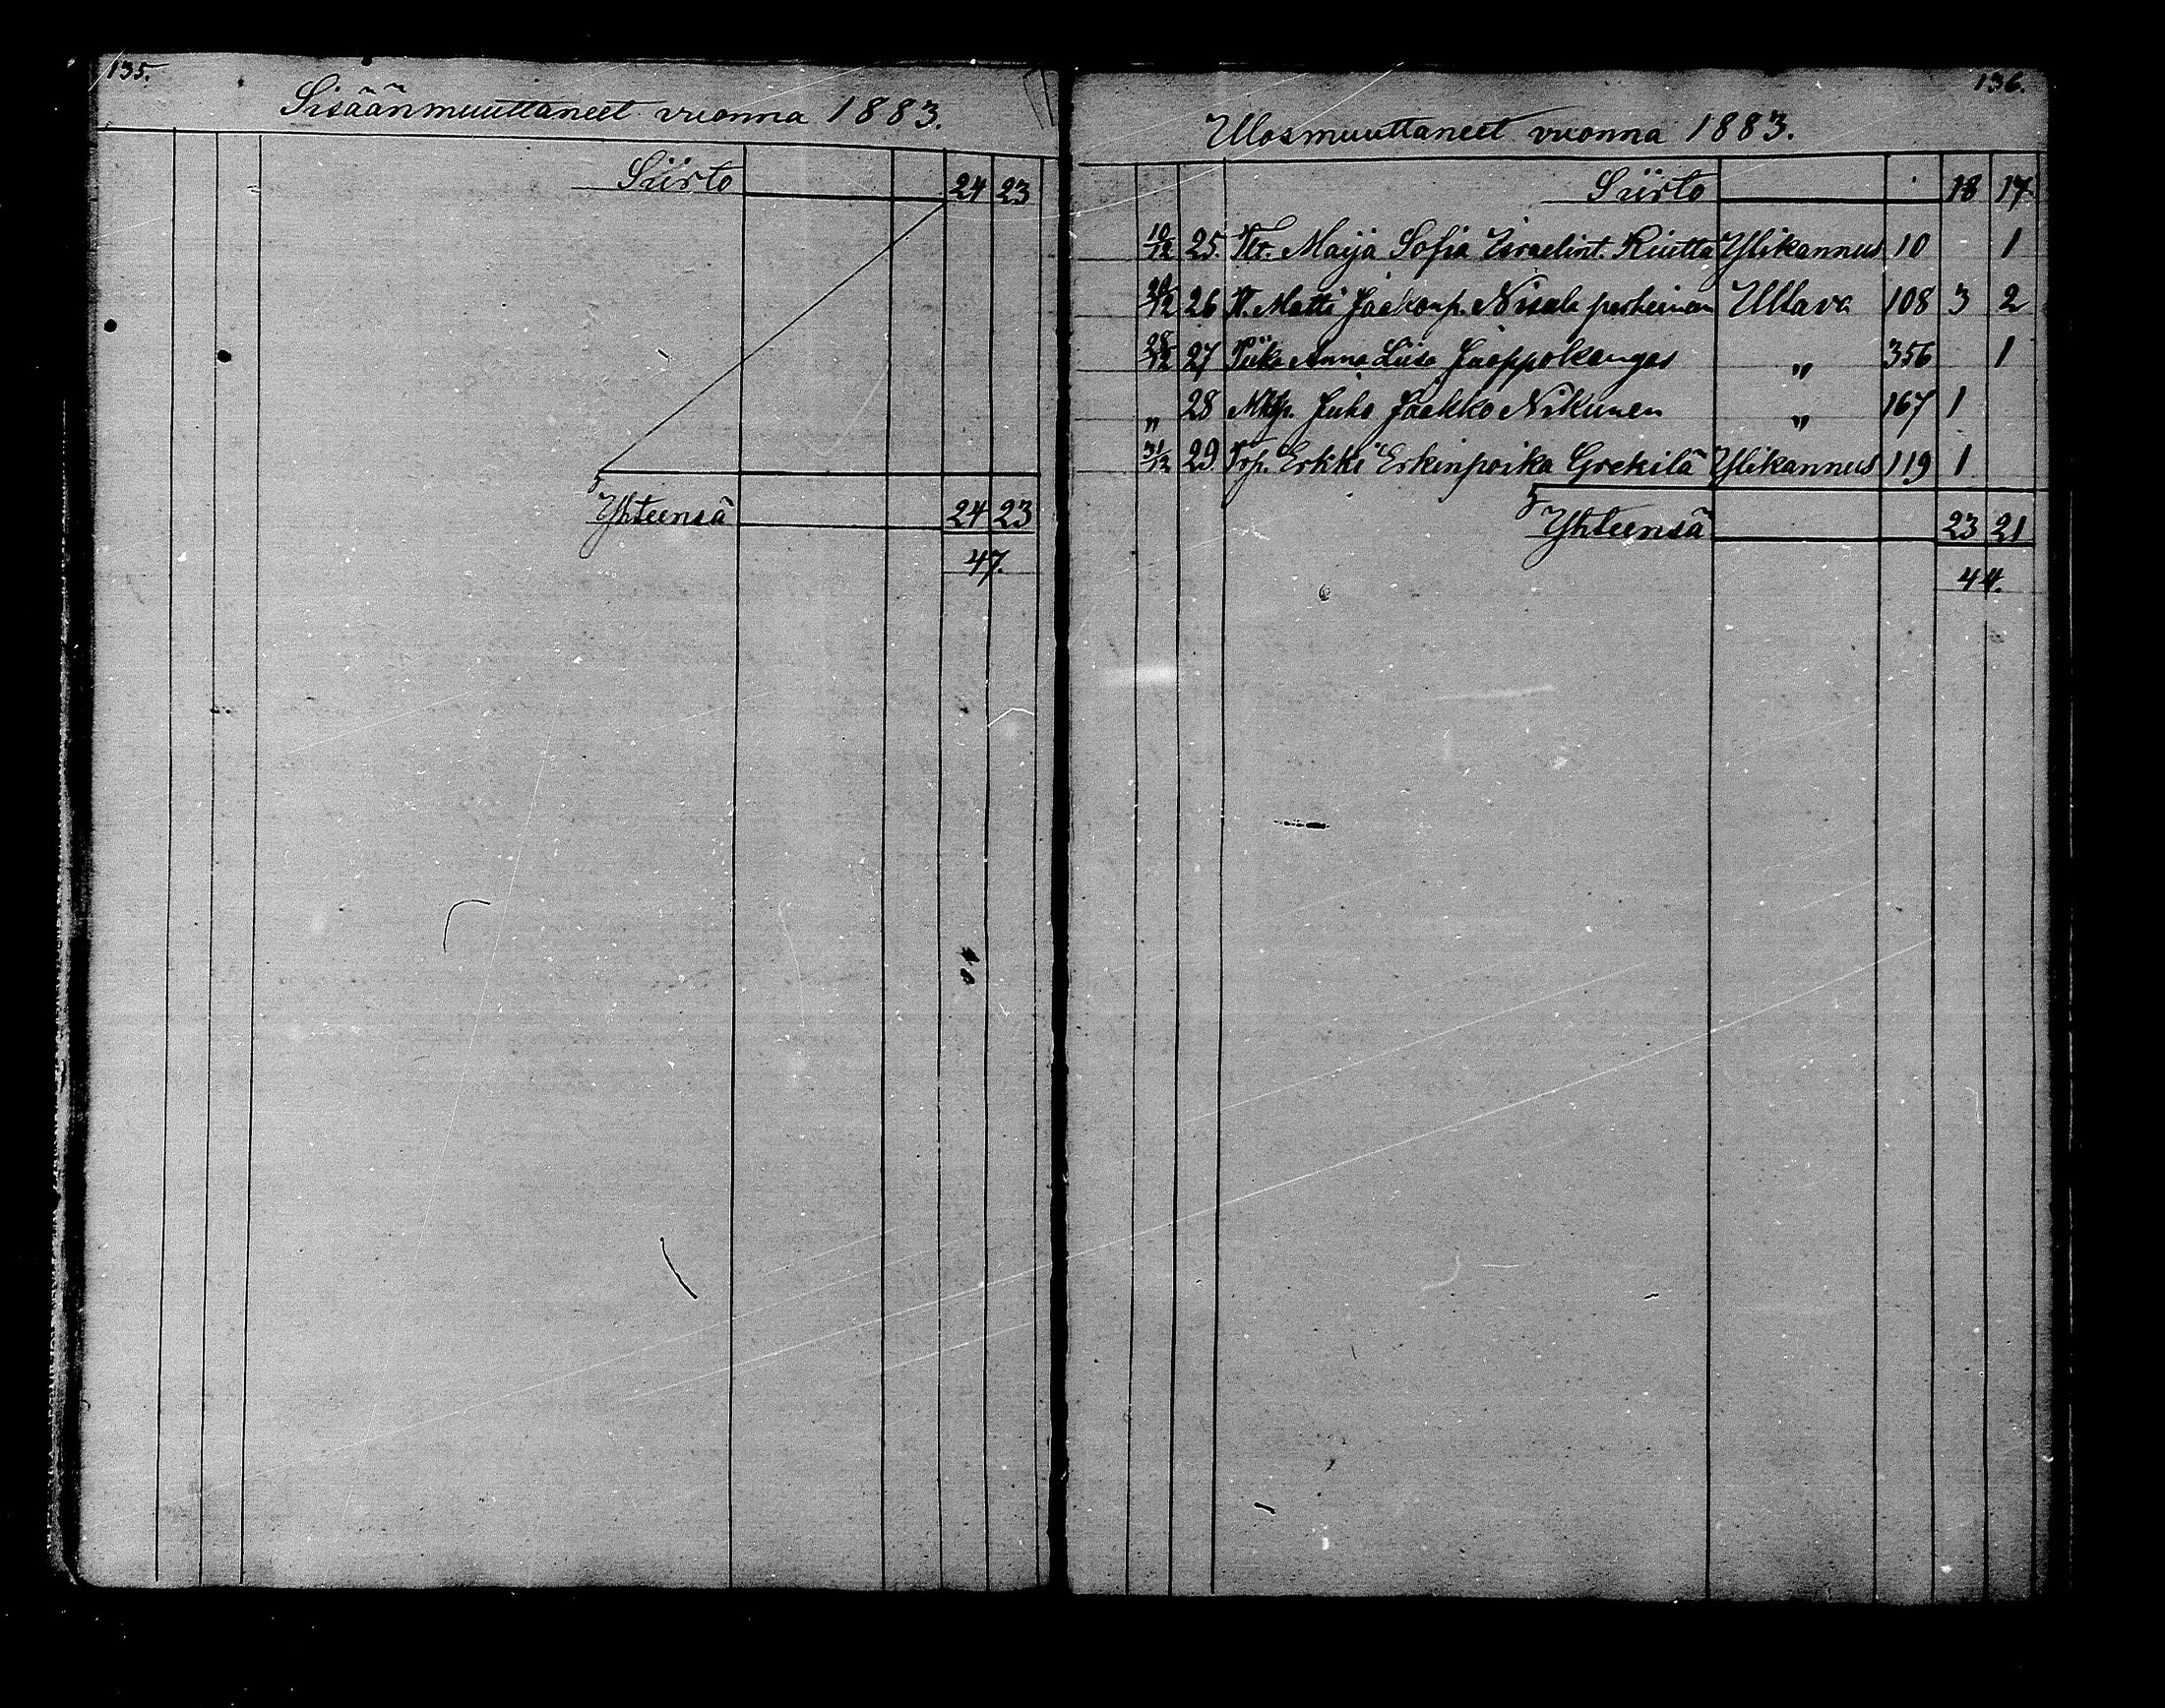 135.
Sisäänmuuttaneet vuonna 1883.
Siirto 24 23
Yhteensä 24 23
47.
136.
Ulosmuuttaneet vuonna 1883.
Siirto 18 17
10/12 25. Tlt. Maija Sofia Israelint. Riutta Ylikannus 10 1
26 Matti Jaakonp. Nisula perheinen Ullava 108 3 2
28/12 27 Piika Anna Liisa Jaappokangas " 356 1
" 28 Juho Jaakko Nikunen " 167 1
31/12 29. Trp. Erkki Erkinpoika Grekilä Ylikannus 119 1
Yhteensä 23 21
44.